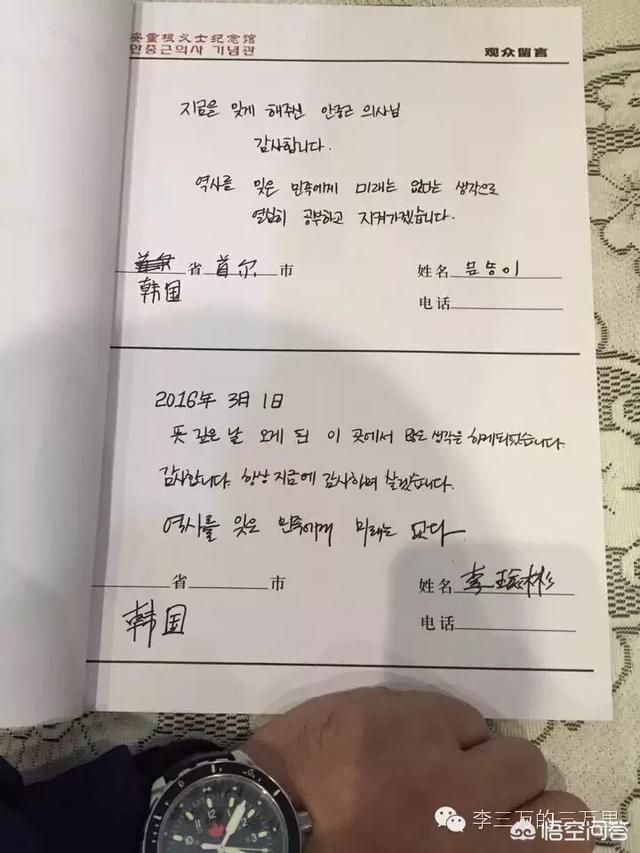 安重根义士纪念馆
안중근의사 기념관
观众留言
지금을 잊게 해주신 안중근 의사님
감사합니다.
역사를 잊은 민족에게 미래는 없다는 생각으로
열심히 공부하고 지켜가겠습니다.
省 首尔 市
韩国
姓名 문송이
电话
2016年 3月 1日
뜻 깊은 날 오게 된 이 곳에서 많은 생각을 하게되었습니다.
감사합니다. 항상 지금에 감사하며 살겠습니다.
역사를 잊은 민족에게 미래는 없다
省 市
韩国
姓名 李 彬
电话
李三万的三万里
悟空问答